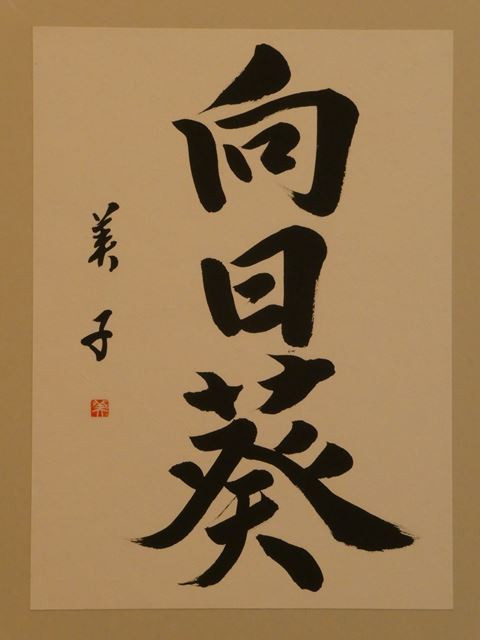 向日葵
美子
美